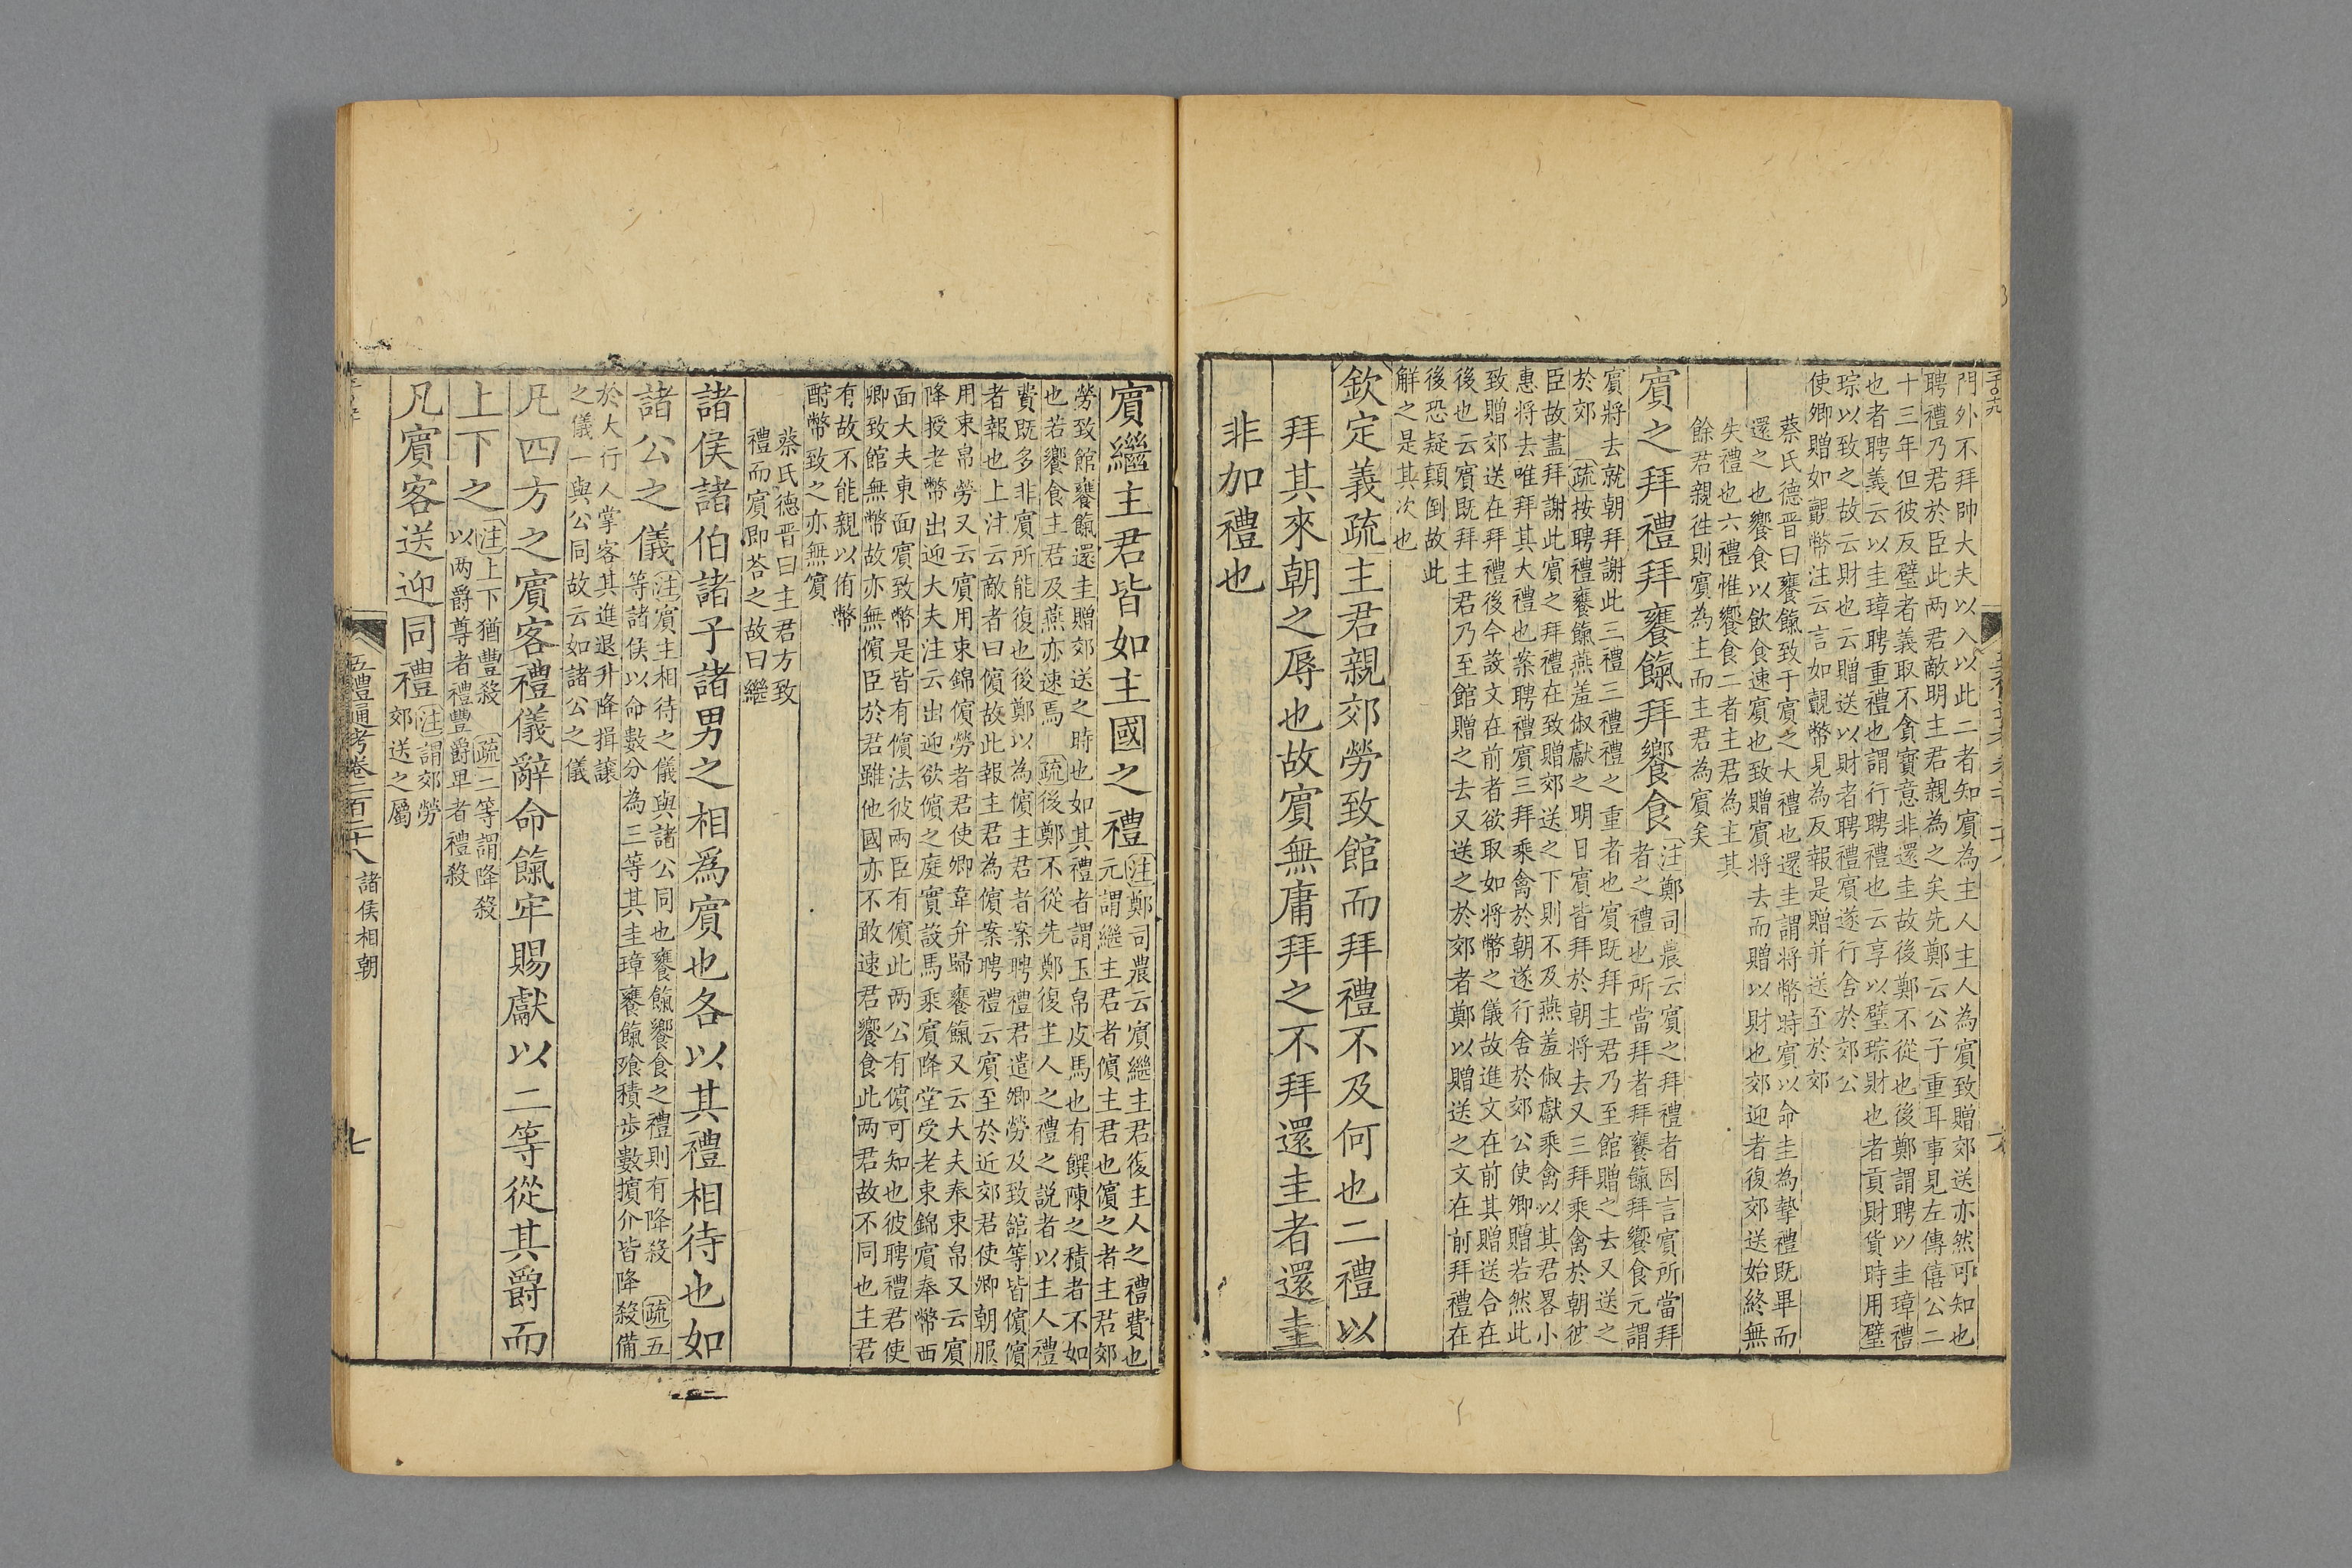 門外不拜帥大夫以入以此二者知賔為主人主人為賔致贈郊送亦然可知也
聘禮乃君於臣此两君敵明主君親為之矣先鄭云公子重耳事見左傳僖公二
十三年但彼反璧者義取不貪寳意非還圭故後鄭不從也後鄭謂聘以圭璋禮
也者聘義云以圭璋聘重禮也謂行聘禮也云享以璧琮財也者貢財貨時用璧
琮以致之故云財也云贈送以財者聘禮賔遂行舍於郊公
使卿贈如覿幣注云言如覿幣見為反報是贈并送至於郊
蔡氏德晋曰饔餼致于賔之大禮也還圭謂将幣時賔以命圭為摯禮既畢而
還之也饗食以飲食速賔也致贈賔将去而贈以財也郊迎者復郊送始終無
失禮也六禮惟饗食二者主君為主其
餘君親徃則賔為主而主君為賔矣
賔之拜禮拜饔餼拜饗食
注鄭司農云賔之拜禮者因言賔所當拜
者之禮也所當拜者拜饔餼拜饗食元謂
賔將去就朝拜謝此三禮三禮禮之重者也賔既拜主君乃至館贈之去又送之
於郊 疏按聘禮饔餼燕羞俶獻之明日賔皆拜於朝将去又三拜乘禽於朝彼
臣故盡拜謝此賔之拜禮在致贈郊送之下則不及燕羞俶獻乘禽以其君畧小
惠将去唯拜其大禮也案聘禮賔三拜乘禽於朝遂行舍於郊公使卿贈若然此
致贈郊送在拜禮後今設文在前者欲取如将幣之儀故進文在前其贈送合在
後也云賔既拜主君乃至館贈之去又送之於郊者鄭以贈送之文在前拜禮在
後恐疑顛倒故此
解之是其次也
欽定義疏主君親郊勞致館而拜禮不及何也二禮以
拜其來朝之辱也故賔無庸拜之不拜還圭者還圭
非加禮也
賔繼主君皆如主國之禮
注鄭司農云賔繼主君復主人之禮費也
元謂繼主君者儐主君也儐之者主君郊
勞致館饔餼還圭贈郊送之時也如其禮者謂玉帛皮馬也有饌陳之積者不如
也若饗食主君及燕亦速焉 疏後鄭不從先鄭復主人之禮之説者以主人禮
費既多非賔所能復也後鄭以為儐主君者案聘禮君遣卿勞及致舘等皆儐儐
者報也上注云敵者曰儐故此報主君為儐案聘禮云賔至於近郊君使卿朝服
用束帛勞又云賔用束錦儐勞者君使卿韋弁歸饔餼又云大夫奉束帛又云賔
降授老幣出迎大夫注云出迎欲儐之庭實設馬乘賔降堂受老束錦賔奉幣西
面大夫東面賔致幣是皆有儐法彼兩臣有儐此两公有儐可知也彼聘禮君使
卿致館無幣故亦無儐臣於君雖他國亦不敢速君饗食此两君故不同也主君
有故不能親以侑幣
酧幣致之亦無賔
蔡氏德晋曰主君方致
禮而賔即荅之故曰繼
諸侯諸伯諸子諸男之相爲賔也各以其禮相待也如
諸公之儀
注賔主相待之儀與諸公同也饔餼饗食之禮則有降殺 疏五
等諸侯以命數分為三等其圭璋饔餼飱積步數擯介皆降殺備
於大行人掌客其進退升降揖讓
之儀一與公同故云如諸公之儀
凡四方之賔客禮儀辭命餼牢賜獻以二等從其爵而
上下之
注上下猶豐殺 疏二等謂降殺
以两爵尊者禮豐爵卑者禮殺
凡賔客送迎同禮
注謂郊勞
郊送之屬
五禮通考卷二百二十八 諸侯相朝 七